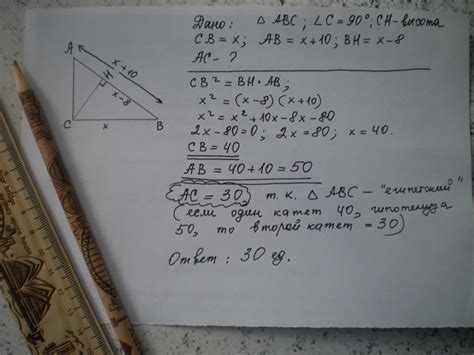 Дано: △ ABC; ∠C = 90°; CH - высота
CB = x; AB = x+10; BH = x-8
AC - ?
A
x+10
H
x-8
C
x
B
CB² = BH · AB;
x² = (x-8)(x+10)
x² = x² + 10x - 8x - 80
2x - 80 = 0; 2x = 80; x = 40.
CB = 40
AB = 40+10 = 50
AC = 30, т.к. △ ABC - "египетский"
(если один катет 40, гипотенуза
50, то второй катет = 30)
Ответ: 30 ед.